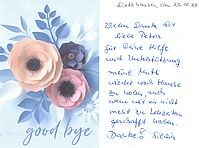 good bye
Vielen Dank für
liebe Petra
für Deine Hilfe
und Unterstützung
meine Mutti
wieder nach Hause
zu holen, auch
wenn wir es nicht
mehr zu Lebzeiten
geschafft haben.
Danke! Silvia